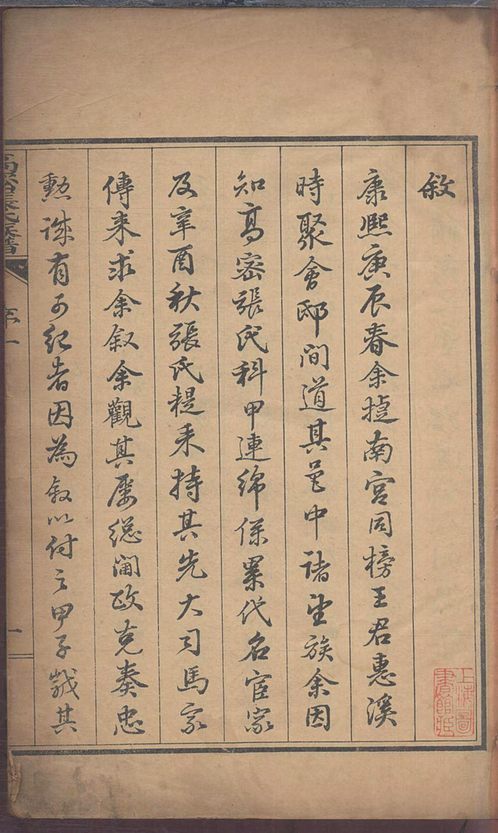 敘
康熙庚辰春余捷南宮同榜王君惠溪
時聚會邸間道其邑中諸望族余因
知高密張氏科甲連綿係累代名宦家
及辛酉秋張氏提秉持其先大司馬家
傳來求余敘余觀其屢總閫政克奏忠
勳誠有可紀者因為敘以付之甲子歲其
高密張氏家譜
序
一
上海圖書館藏